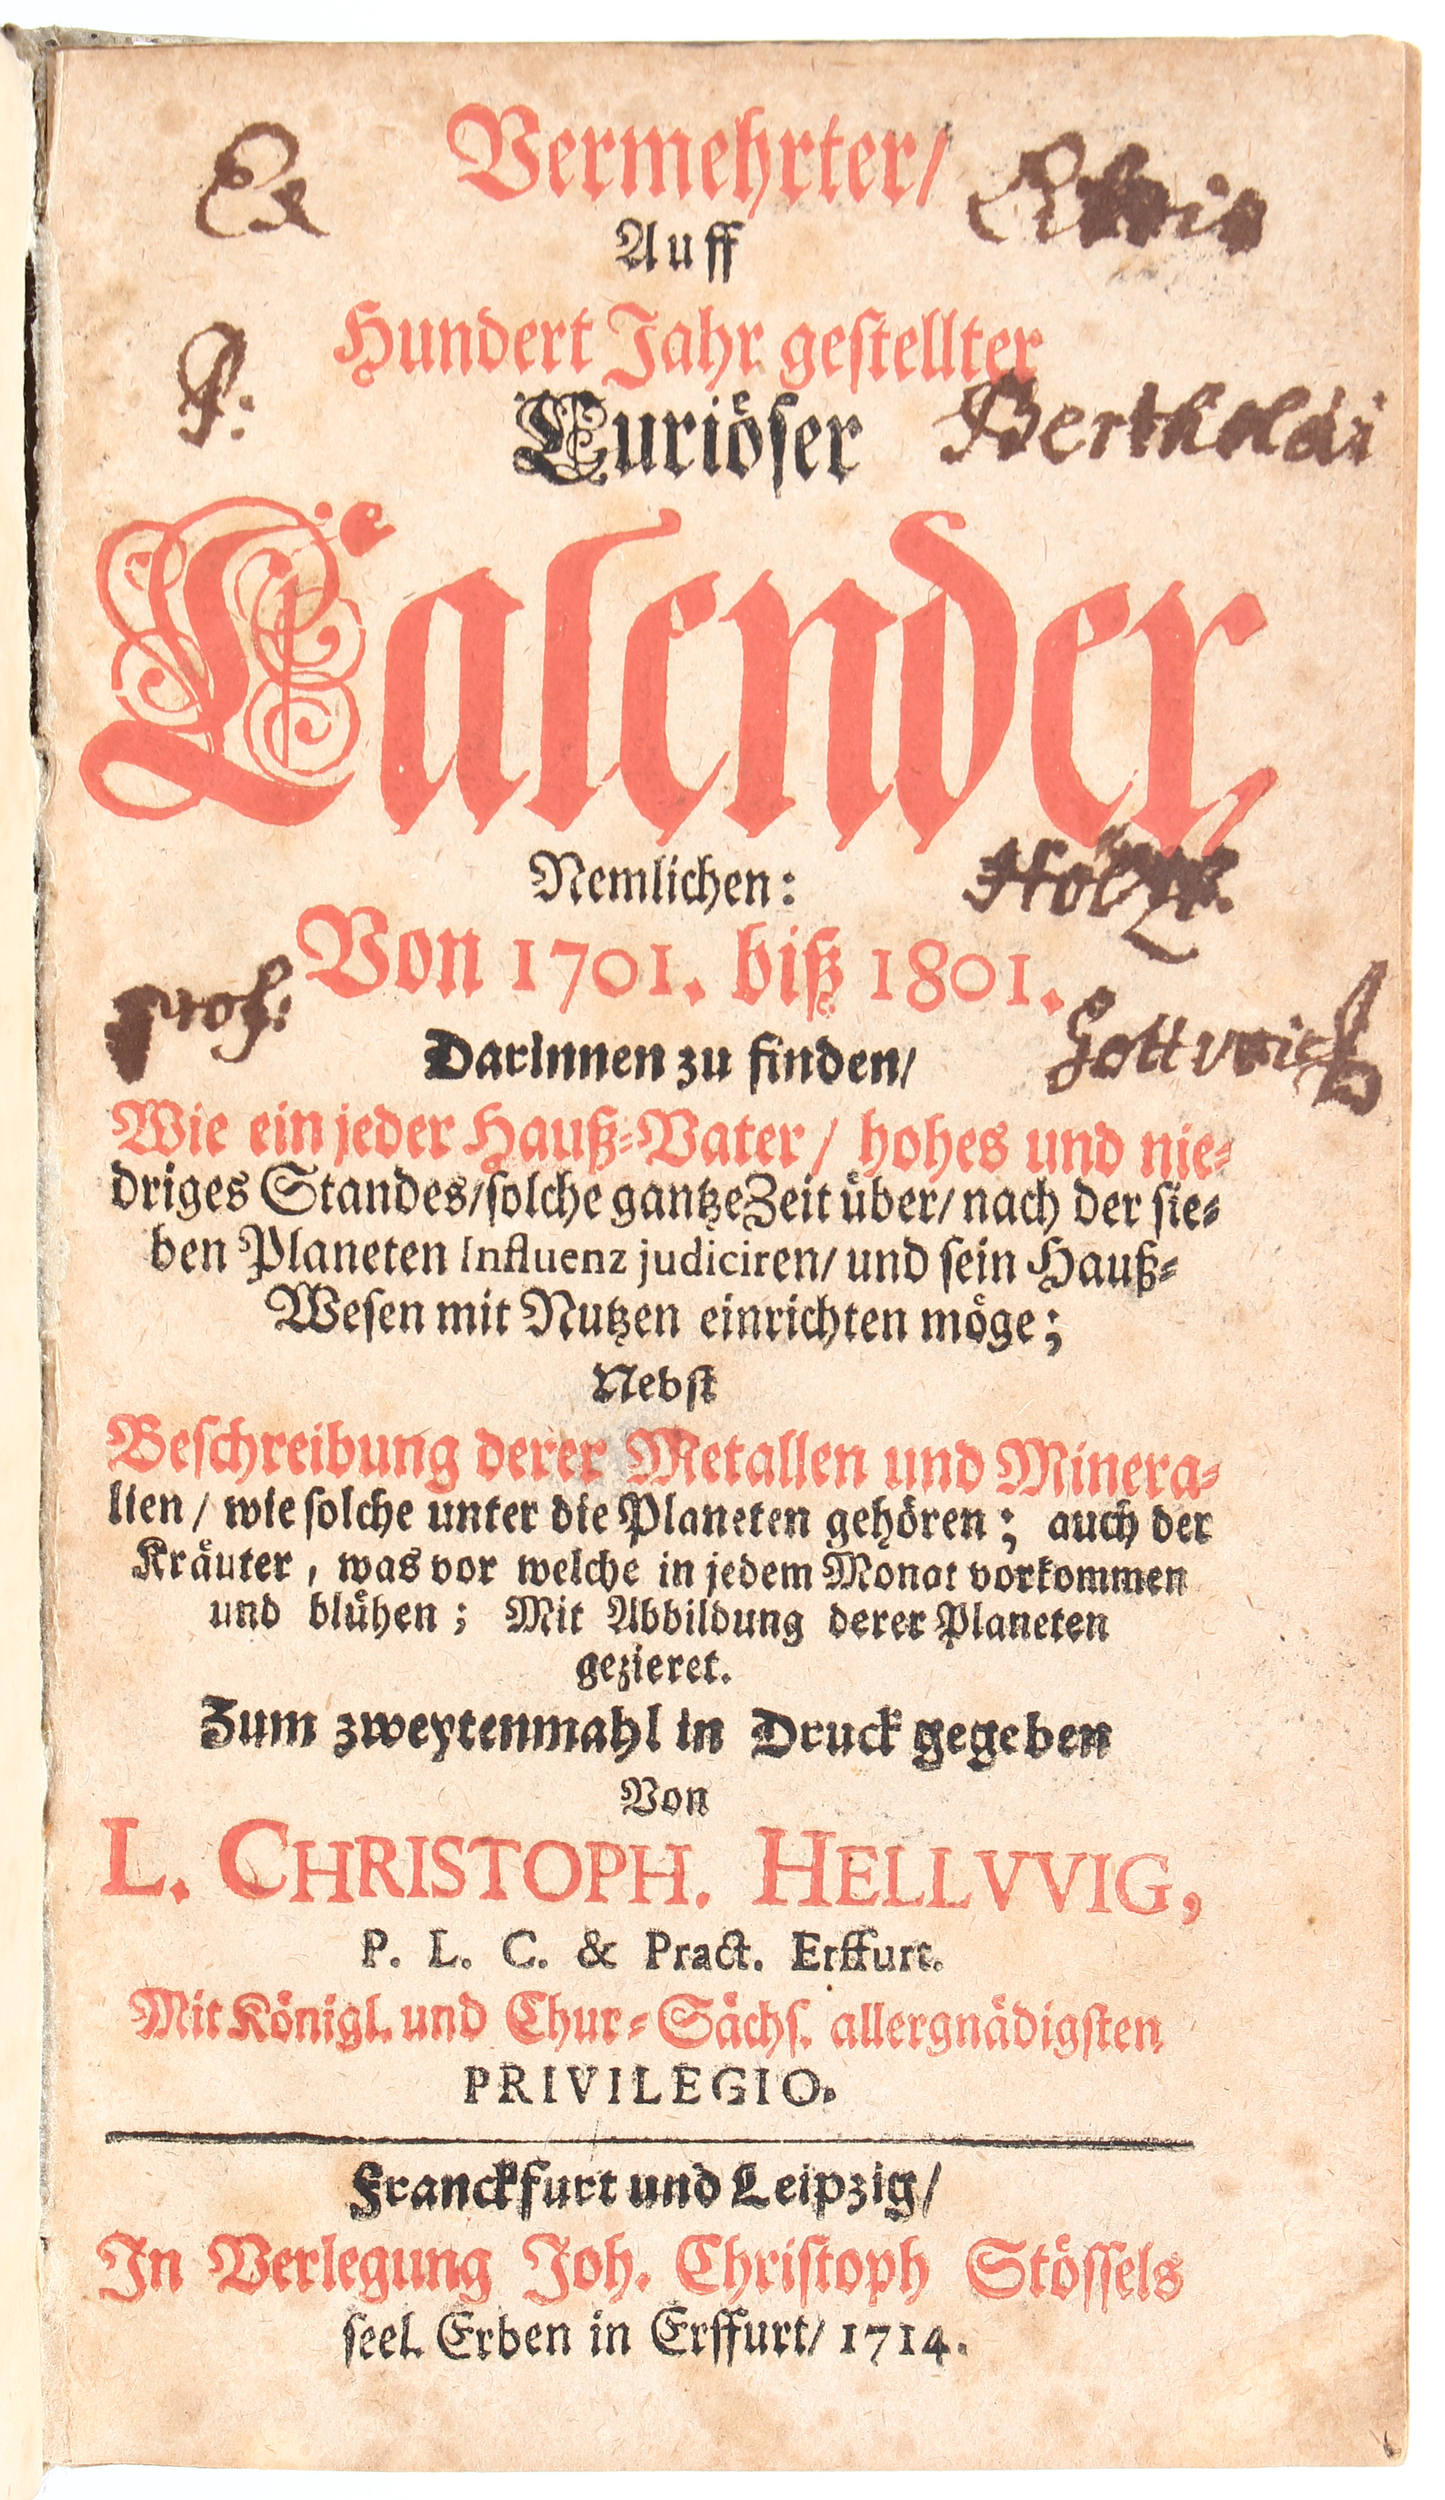 Vermehrter/
Ex
Auff
Hundert Jahr gestellter
P:
Curiöser
Bertholdi
Calender,
Nemlichen:
Von 1701. biß 1801.
prof:
Gottwich
Darinnen zu finden/
Wie ein jeder Hauß-Vater/ hohes und nie-
driges Standes/solche gantze Zeit über/ nach der sie-
ben Planeten Influenz judiciren/ und sein Hauß-
Wesen mit Nutzen einrichten möge;
Nebst
Beschreibung derer Metallen und Minera-
lien/ wie solche unter die Planeten gehören; auch der
Kräuter, was vor welche in jedem Monat vorkommen
und blühen; Mit Abbildung derer Planeten
gezieret.
Zum zweytenmahl in Druck gegeben
Von
L. CHRISTOPH. HELLVVIG,
P. L. C. & Pract. Erffurt.
Mit Königl. und Chur-Sächs. allergnädigsten
PRIVILEGIO.
Franckfurt und Leipzig/
In Verlegung Joh. Christoph Stössels
seel. Erben in Erffurt/ 1714.